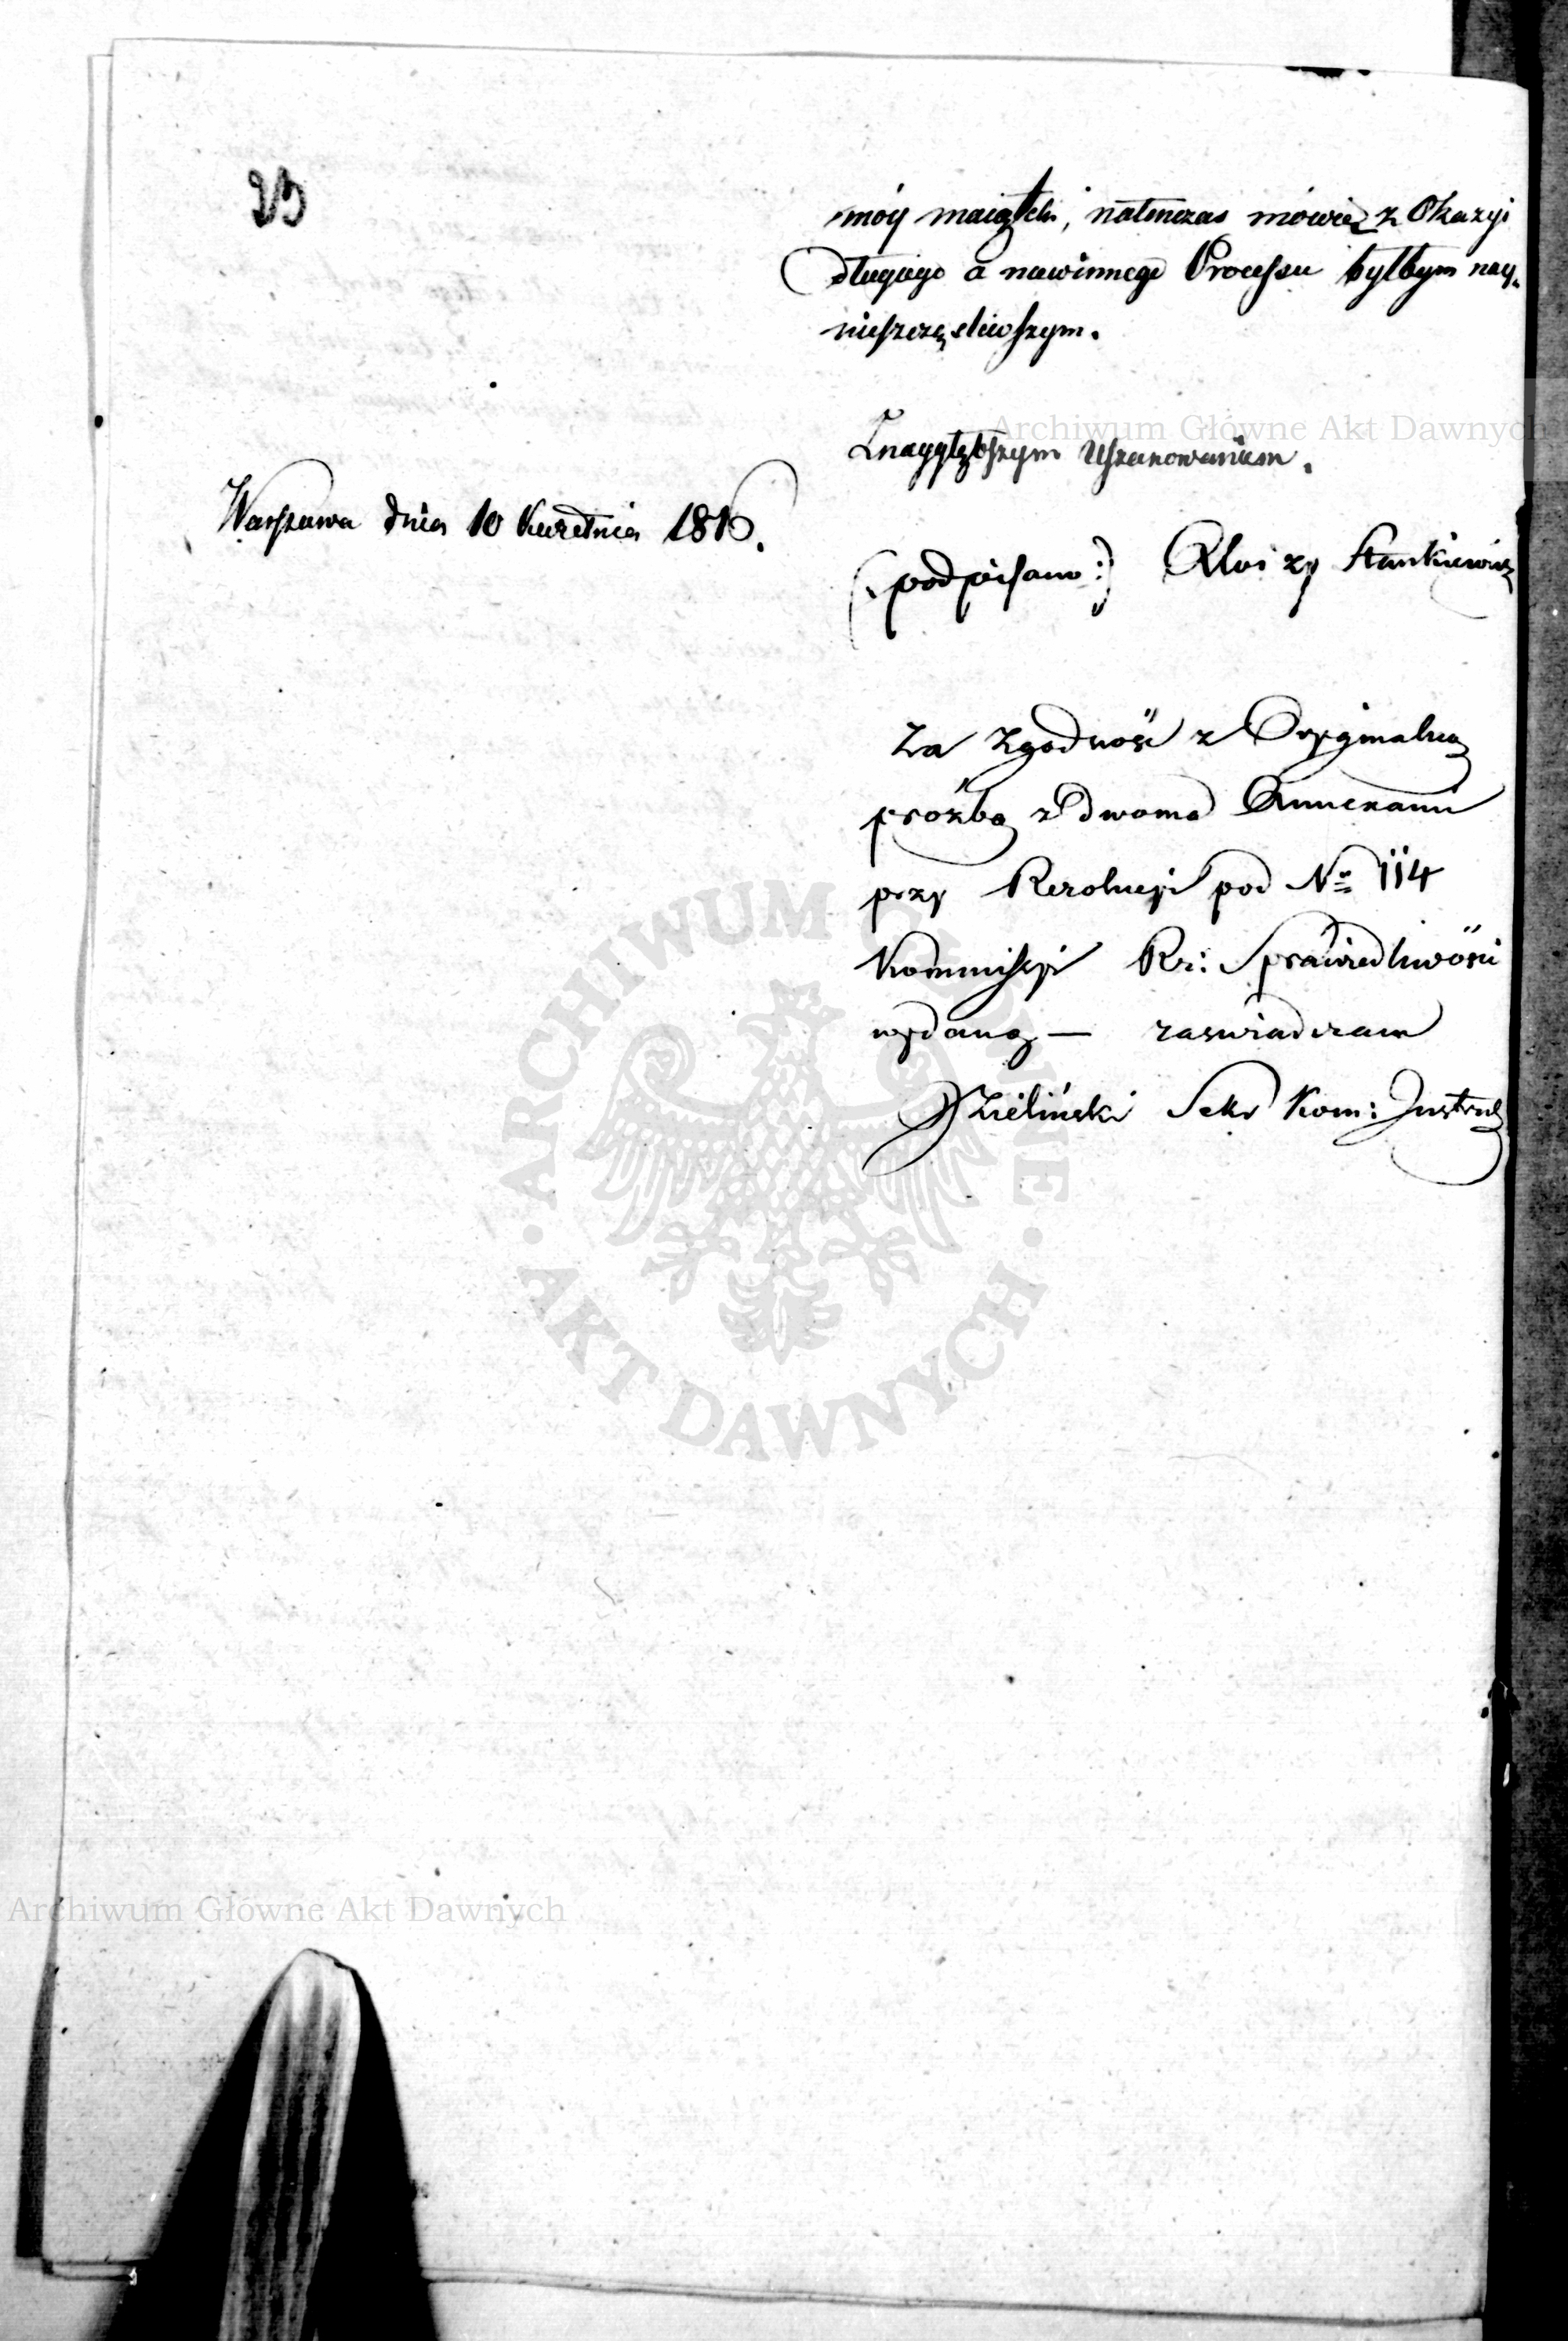 23
móy maiątek, natenczas mówię z Okazyi
długiego a niewinnego Processu byłbym nay-
nieszczęśliwszym.
Z naygłębszym Uszanowaniem.
Warszawa dnia 10 Kwietnia 1816.
(:podpisano:) Aloizy Stankiewicz
Za zgodność z Oryginalną
prożbą z dwoma Annexami
przy Rezolucyi pod Nro 114
Kommissyi Rz: Sprawiedliwości
wydaną — zaswiadczam
Zieliński Sekr Kom: Instruk
Archiwum Główne Akt Dawnych
ARCHIWUM GŁÓWNE AKT DAWNYCH
Archiwum Główne Akt Dawnych